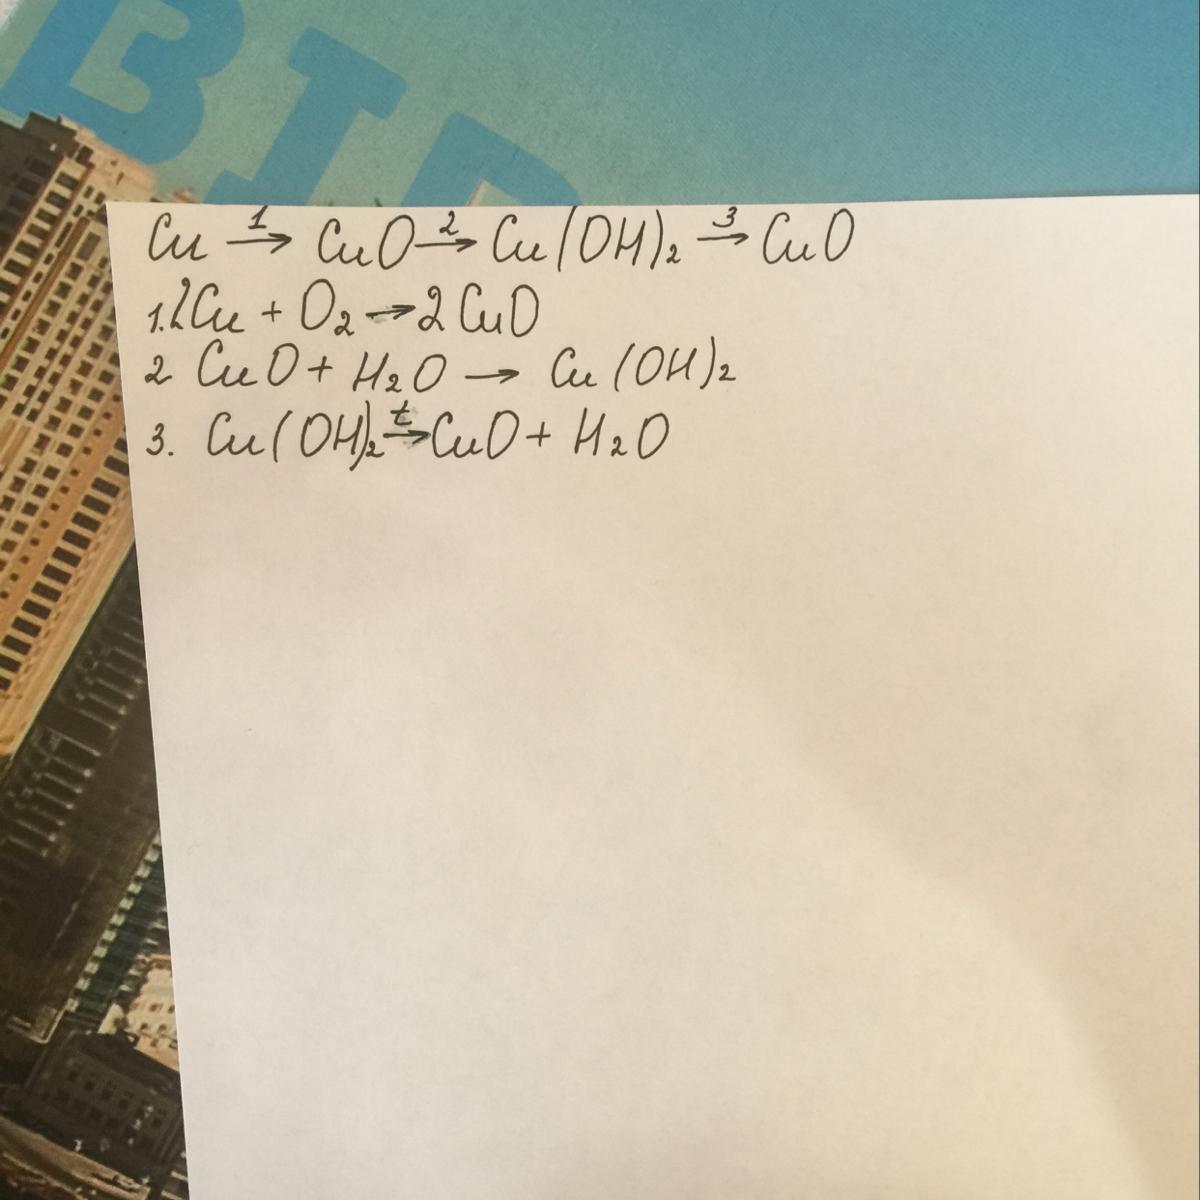 Cu 1→ CuO 2→ Cu(OH)₂ 3→ CuO
1. 2Cu + O₂ → 2CuO
2 CuO + H₂O → Cu(OH)₂
3. Cu(OH)₂ t→ CuO + H₂O